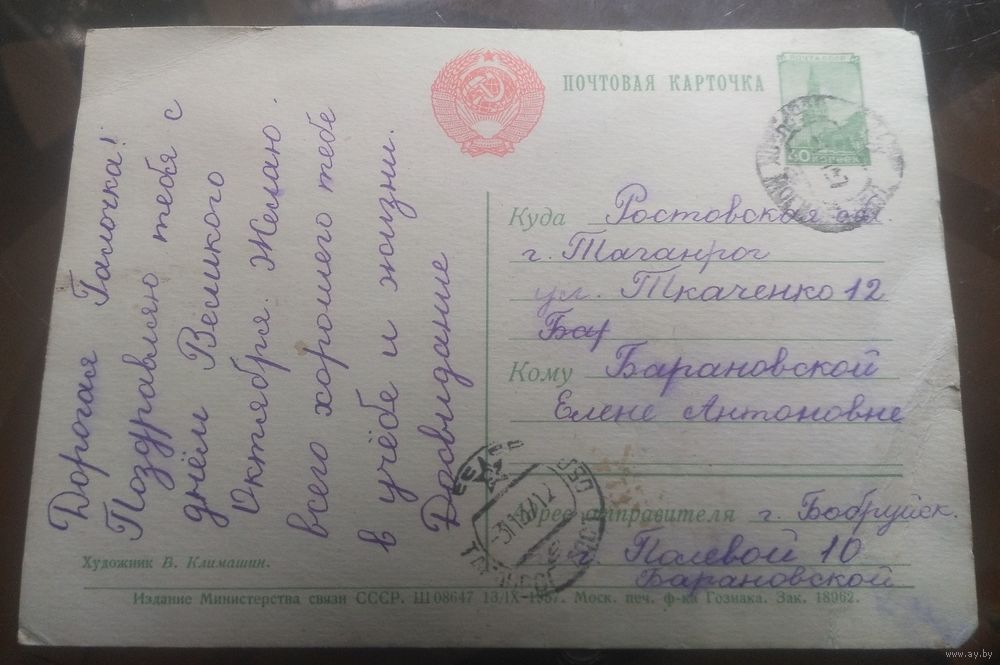 ПОЧТОВАЯ КАРТОЧКА
ПОЧТА СССР
40 КОПЕЕК
Дорогая Галочка!
Поздравляю тебя с
днём Великого
Октября. Желаю
всего хорошего тебе
в учёбе и жизни.
Досвидание
Куда Ростовская обл
г. Таганрог
ул. Ткаченко 12
Бар
Кому Барановской
Елене Антоновне
Адрес отправителя г. Бобруйск.
Полевой 10
Барановской
Художник В. Климашин.
Издание Министерства связи СССР. Ш 08647 13/IX—1957. Моск. печ. ф-ка Гознака. Зак. 18962.
www.ay.by